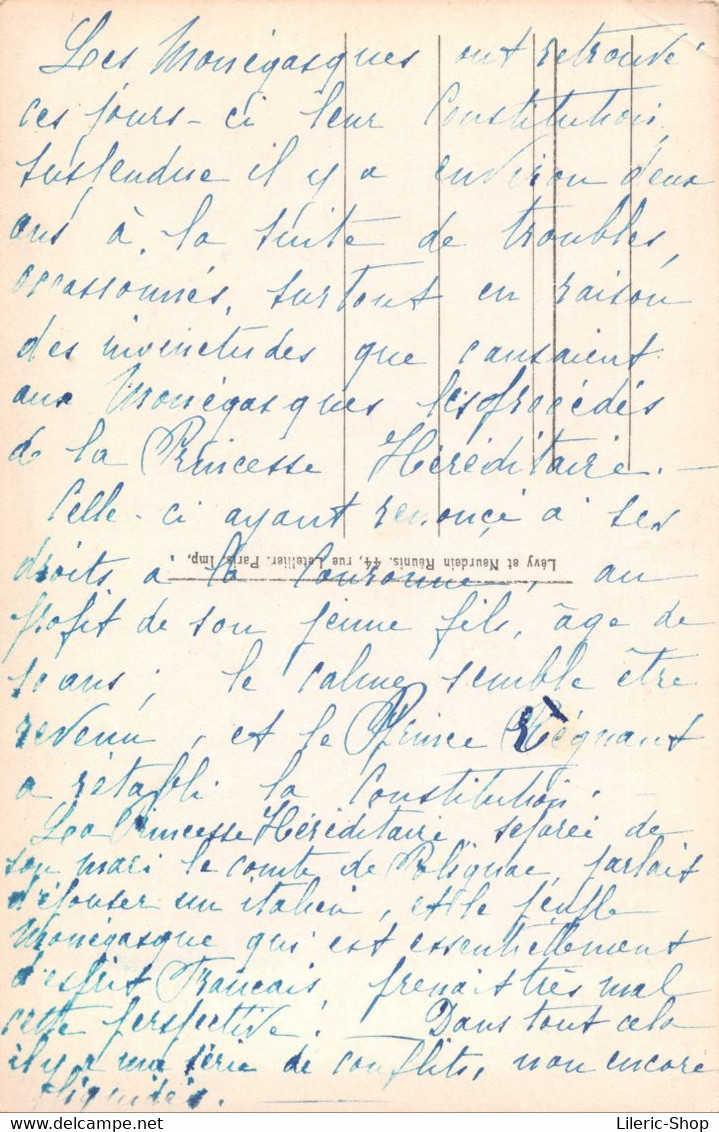 Les Monégasques ont retrouvé
ces jours-ci leur Constitution,
suspendue il y a environ deux
ans à la suite de troubles,
occassonnés, surtout en raison
des inquietudes que causaient
aux Monégasques les procédés
de la Princesse Héréditaire. -
Celle-ci ayant renonçé à ses
droits à la Couronne, au
profit de son jeune fils, âge de
10 ans; le calme semble être
revenu, et le Prince Régnant
a rétabli la Constitution. -
La Princesse Héréditaire, separée de
son mari le comte de Polignac, parlait
d'épouser un italien, et le peuple
Monégasque qui est essentiellement
d'esprit Francais, prenait très mal
cette perspective! Dans tout cela
il y a une série de conflits, non encore
liquidés.
Lévy et Neurdein Réunis. 44, rue Letellier. Paris, Imp.
Lileric-Shop